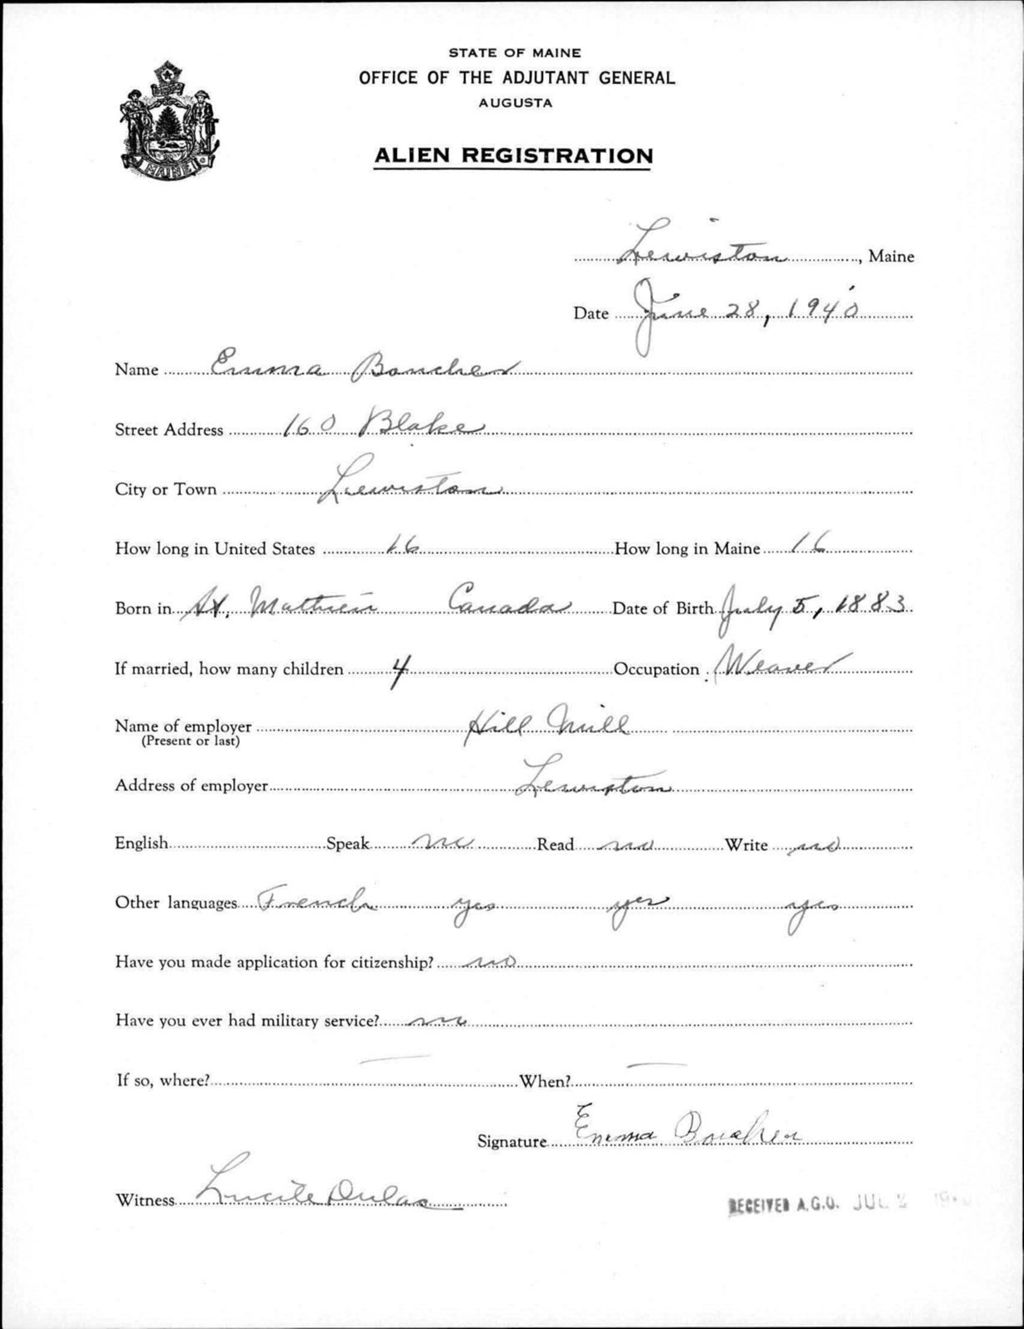 STATE OF MAINE
OFFICE OF THE ADJUTANT GENERAL
AUGUSTA
ALIEN REGISTRATION
MAINE
Lewiston, Maine
Date June 28, 1940
Name Emma Boucher
Street Address 160 Blake
City or Town Lewiston
How long in United States 16 How long in Maine 16
Born in St. Mathieu Canada Date of Birth July 5, 1883
If married, how many children 4 Occupation Weaver
Name of employer Hill Mill
(Present or last)
Address of employer Lewiston
English Speak no Read no Write no
Other languages French yes yes yes
Have you made application for citizenship? no
Have you ever had military service? no
If so, where? — When? —
Signature Emma Boucher
Witness Lucile Dulac
RECEIVED A.G.O. JUL 2